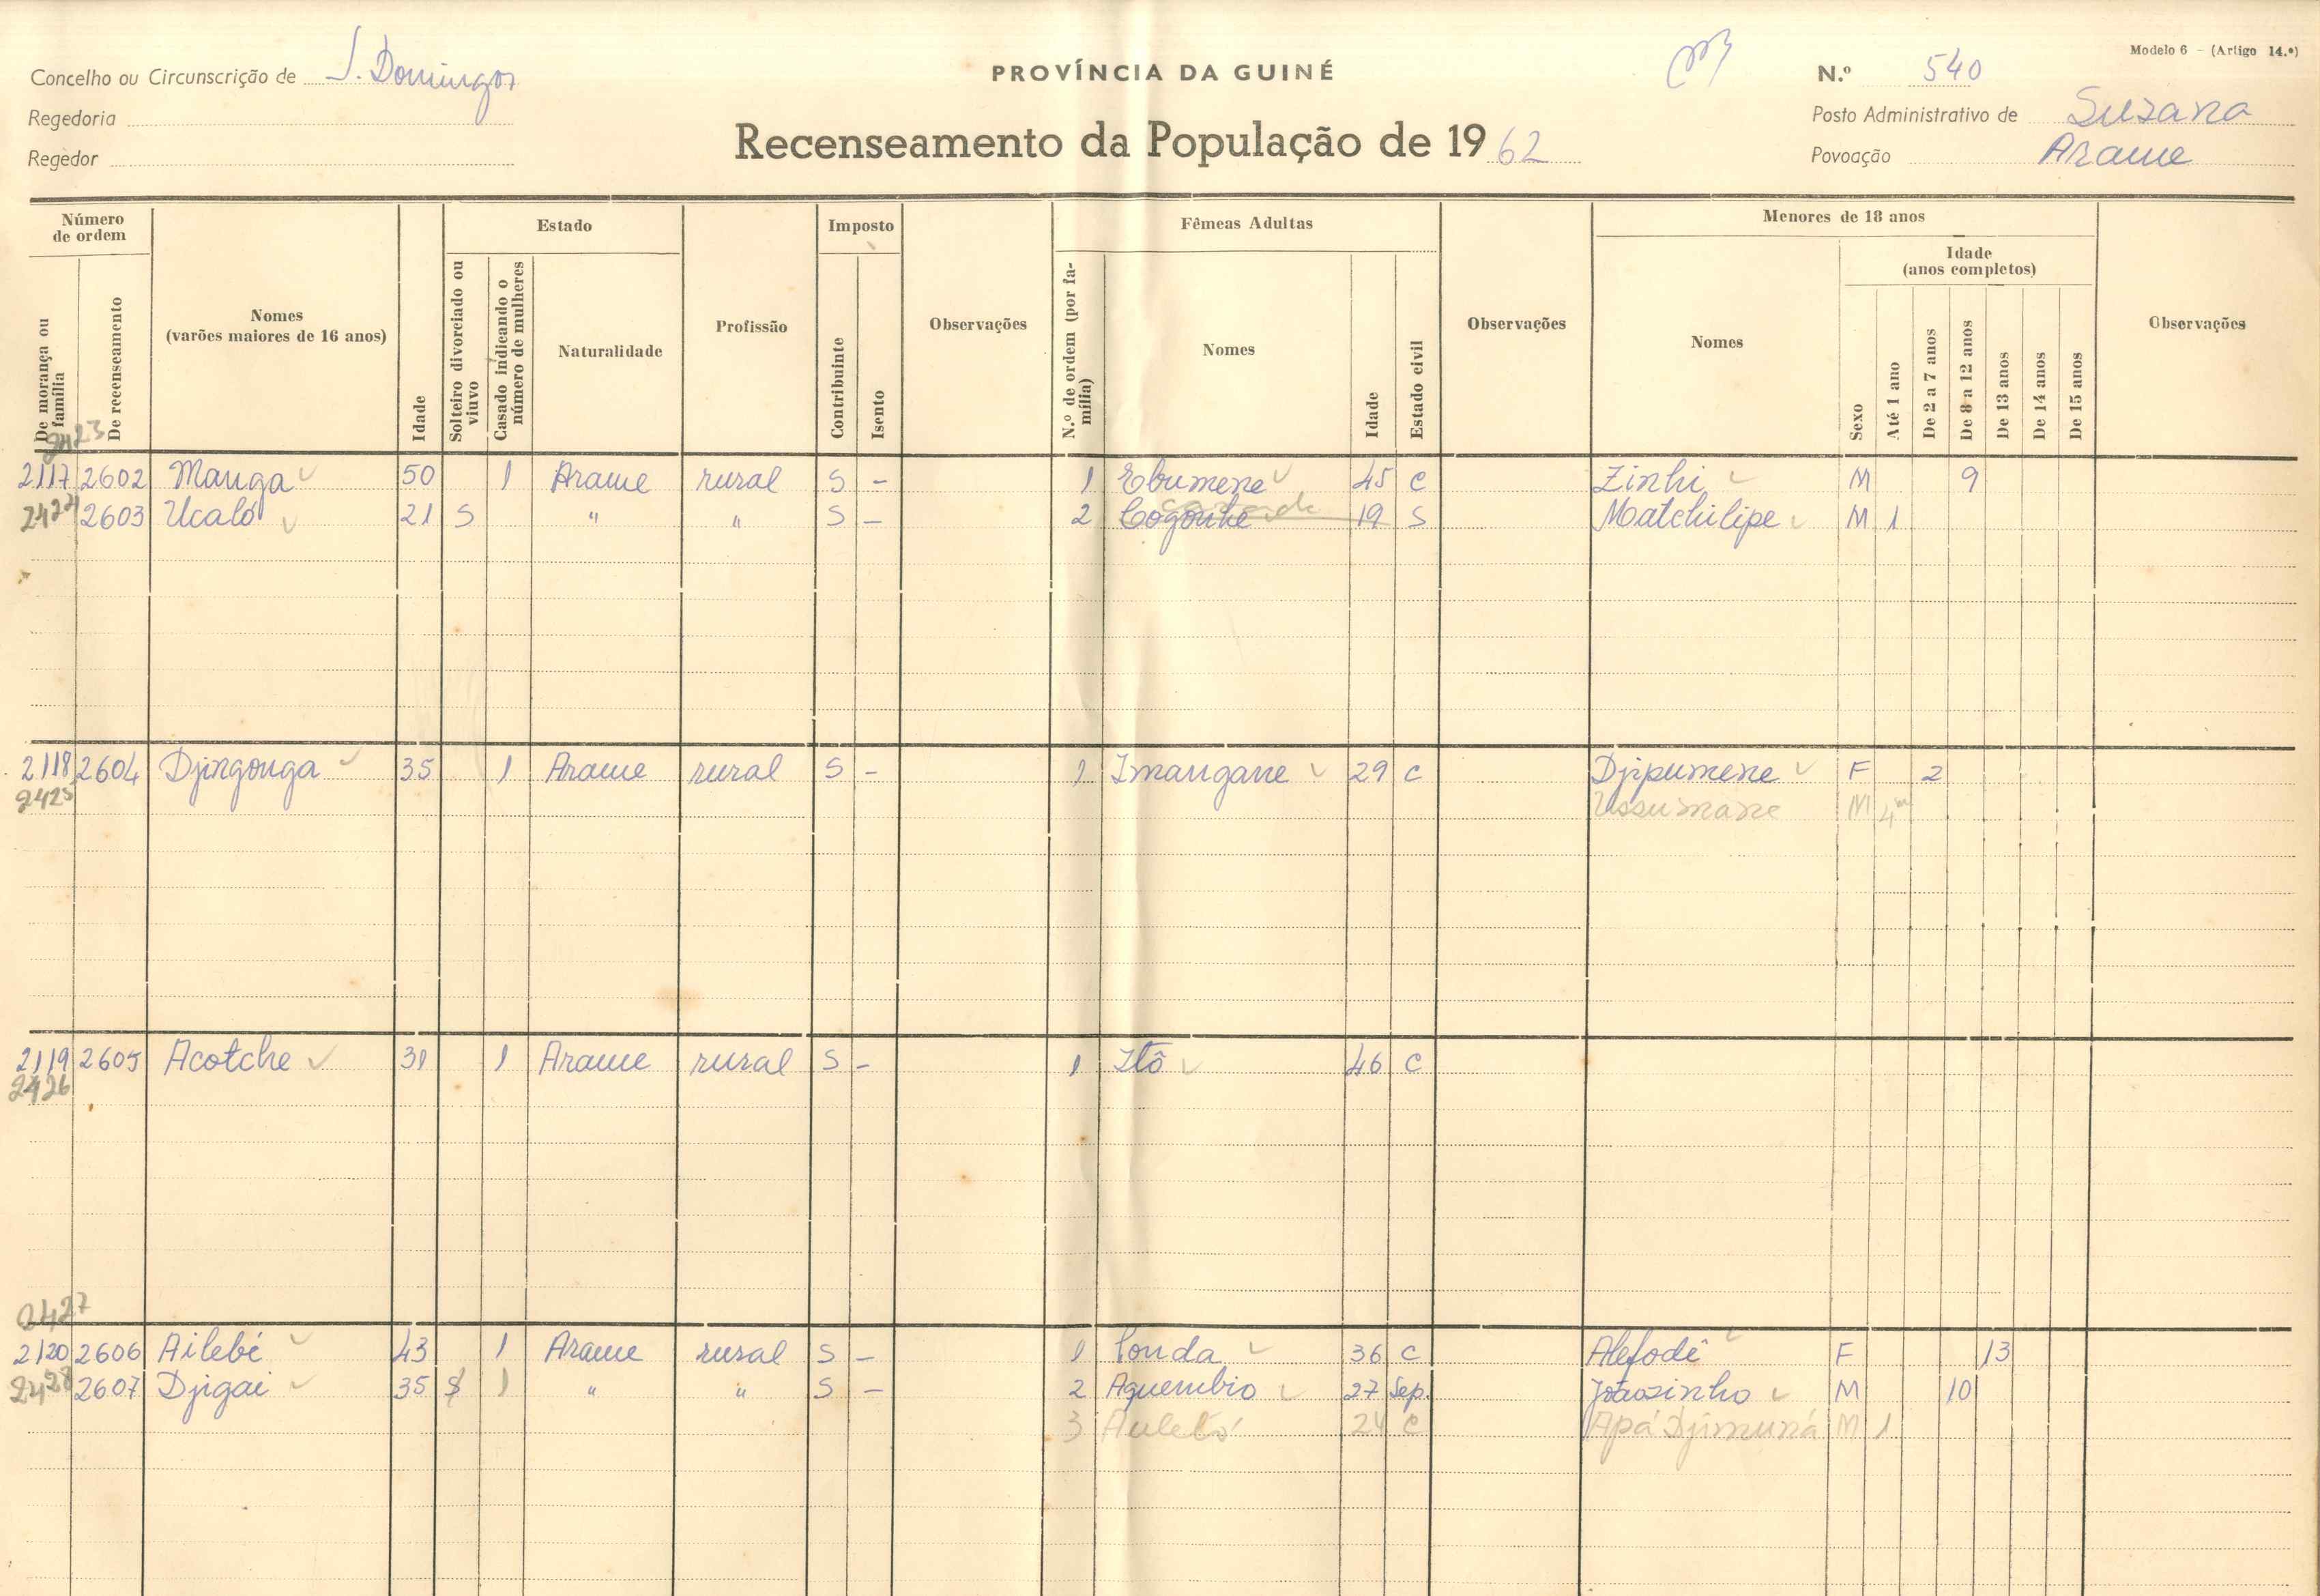 Modelo 6 - (Artigo 14.º)
Concelho ou Circunscrição de S. Domingos
PROVÍNCIA DA GUINÉ
N.º 540
Regedoria
Posto Administrativo de Suzana
Regedor
Recenseamento da População de 1962
Povoação Arame
Número de ordem
Estado
Imposto
Fêmeas Adultas
Menores de 18 anos
Idade (anos completos)
De morança ou família
De recenseamento
Nomes (varões maiores de 16 anos)
Idade
Solteiro divorciado ou viuvo
Casado indicando o número de mulheres
Naturalidade
Profissão
Contribuinte
Isento
Observações
N.º de ordem (por família)
Nomes
Idade
Estado civil
Observações
Nomes
Sexo
Até 1 ano
De 2 a 7 anos
De 8 a 12 anos
De 13 anos
De 14 anos
De 15 anos
Observações
2423
2117 2602 Manga 50 1 Arame rural S - 1 Ebumene 45 C Zinhi M 9
2424 2603 Ucaló 21 S " " S - 2 Cogonhe 19 S Matchilipe M 1
2118 2604 Djingonga 35 1 Arame rural S - 1 Imangane 29 C Djipumene F 2
2425 Ussumane M 4m
2119 2605 Acotche 31 1 Arame rural S - 1 Itô 46 C
2426
2427
2120 2606 Ailebé 43 1 Arame rural S - 1 Conda 36 C Alefodê F 13
2428 2607 Djigai 35 S 1 " " S - 2 Aquembio 27 Sep. Joãozinho M 10
3 Auletó 24 C Apá Djimuná M 1